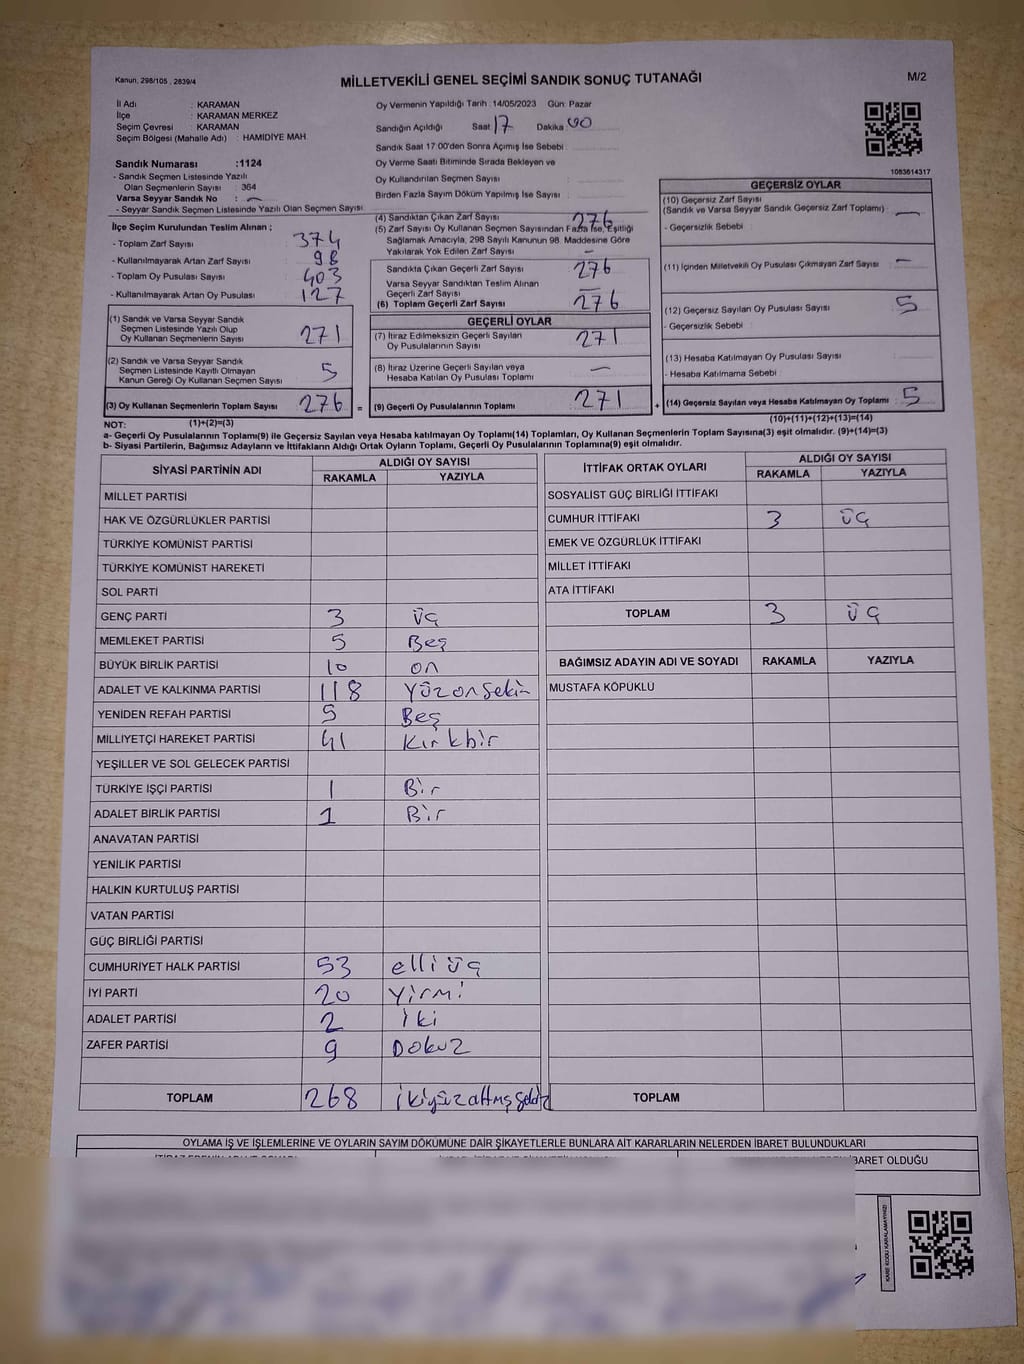 Kanun, 298/105 , 2839/4
MİLLETVEKİLİ GENEL SEÇİMİ SANDIK SONUÇ TUTANAĞI
M/2
İl Adı : KARAMAN
İlçe : KARAMAN MERKEZ
Seçim Çevresi : KARAMAN
Seçim Bölgesi (Mahalle Adı) : HAMIDIYE MAH
Sandık Numarası :1124
- Sandık Seçmen Listesinde Yazılı
Olan Seçmenlerin Sayısı : 364
Varsa Seyyar Sandık No : —
- Seyyar Sandık Seçmen Listesinde Yazılı Olan Seçmen Sayısı
İlçe Seçim Kurulundan Teslim Alınan ;
- Toplam Zarf Sayısı : 374
- Kullanılmayarak Artan Zarf Sayısı : 98
- Toplam Oy Pusulası Sayısı : 403
- Kullanılmayarak Artan Oy Pusulası : 127
(1) Sandık ve Varsa Seyyar Sandık
Seçmen Listesinde Yazılı Olup
Oy Kullanan Seçmenlerin Sayısı 271
(2) Sandık ve Varsa Seyyar Sandık
Seçmen Listesinde Kayıtlı Olmayan
Kanun Gereği Oy Kullanan Seçmen Sayısı 5
(3) Oy Kullanan Seçmenlerin Toplam Sayısı 276 =
(1)+(2)=(3)
Oy Vermenin Yapıldığı Tarih : 14/05/2023 Gün: Pazar
Sandığın Açıldığı Saat 17 Dakika 00
Sandık Saat 17:00'den Sonra Açımış İse Sebebi :
Oy Verme Saati Bitiminde Sırada Bekleyen ve
Oy Kullandırılan Seçmen Sayısı :
Birden Fazla Sayım Döküm Yapılmış İse Sayısı :
(4) Sandıktan Çıkan Zarf Sayısı 276
(5) Zarf Sayısı Oy Kullanan Seçmen Sayısından Fazla İse, Eşitliği
Sağlamak Amacıyla, 298 Sayılı Kanunun 98. Maddesine Göre
Yakılarak Yok Edilen Zarf Sayısı —
Sandıkta Çıkan Geçerli Zarf Sayısı 276
Varsa Seyyar Sandıktan Teslim Alınan
Geçerli Zarf Sayısı —
(6) Toplam Geçerli Zarf Sayısı 276
GEÇERLİ OYLAR
(7) İtiraz Edilmeksizin Geçerli Sayılan
Oy Pusulalarının Sayısı 271
(8) İtiraz Üzerine Geçerli Sayılan veya
Hesaba Katılan Oy Pusulası Toplamı —
(9) Geçerli Oy Pusulalarının Toplamı 271 +
1083614317
GEÇERSİZ OYLAR
(10) Geçersiz Zarf Sayısı
(Sandık ve Varsa Seyyar Sandık Geçersiz Zarf Toplamı) —
- Geçersizlik Sebebi :
(11) İçinden Milletvekili Oy Pusulası Çıkmayan Zarf Sayısı —
(12) Geçersiz Sayılan Oy Pusulası Sayısı : 5
- Geçersizlik Sebebi :
(13) Hesaba Katılmayan Oy Pusulası Sayısı :
- Hesaba Katılmama Sebebi :
(14) Geçersiz Sayılan veya Hesaba Katılmayan Oy Toplamı 5
(10)+(11)+(12)+(13)=(14)
NOT:
a- Geçerli Oy Pusulalarının Toplamı(9) ile Geçersiz Sayılan veya Hesaba Katılmayan Oy Toplamı(14) Toplamları, Oy Kullanan Seçmenlerin Toplam Sayısına(3) eşit olmalıdır. (9)+(14)=(3)
b- Siyasi Partilerin, Bağımsız Adayların ve İttifakların Aldığı Ortak Oyların Toplamı, Geçerli Oy Pusulalarının Toplamına(9) eşit olmalıdır.
SİYASİ PARTİNİN ADI ALDIĞI OY SAYISI
RAKAMLA YAZIYLA
MİLLET PARTİSİ
HAK VE ÖZGÜRLÜKLER PARTİSİ
TÜRKİYE KOMÜNİST PARTİSİ
TÜRKİYE KOMÜNİST HAREKETİ
SOL PARTİ
GENÇ PARTİ 3 üç
MEMLEKET PARTİSİ 5 Beş
BÜYÜK BİRLİK PARTİSİ 10 on
ADALET VE KALKINMA PARTİSİ 118 Yüzonsekiz
YENİDEN REFAH PARTİSİ 5 Beş
MİLLİYETÇİ HAREKET PARTİSİ 41 Kırkbir
YEŞİLLER VE SOL GELECEK PARTİSİ
TÜRKİYE İŞÇİ PARTİSİ 1 Bir
ADALET BİRLİK PARTİSİ 1 Bir
ANAVATAN PARTİSİ
YENİLİK PARTİSİ
HALKIN KURTULUŞ PARTİSİ
VATAN PARTİSİ
GÜÇ BİRLİĞİ PARTİSİ
CUMHURİYET HALK PARTİSİ 53 elliüç
İYİ PARTİ 20 Yirmi
ADALET PARTİSİ 2 iki
ZAFER PARTİSİ 9 Dokuz
TOPLAM 268 ikiyüzaltmışsekiz
İTTİFAK ORTAK OYLARI ALDIĞI OY SAYISI
RAKAMLA YAZIYLA
SOSYALİST GÜÇ BİRLİĞİ İTTİFAKI
CUMHUR İTTİFAKI 3 üç
EMEK VE ÖZGÜRLÜK İTTİFAKI
MİLLET İTTİFAKI
ATA İTTİFAKI
TOPLAM 3 üç
BAĞIMSIZ ADAYIN ADI VE SOYADI RAKAMLA YAZIYLA
MUSTAFA KÖPÜKLÜ
TOPLAM
OYLAMA İŞ VE İŞLEMLERİNE VE OYLARIN SAYIM DÖKÜMÜNE DAİR ŞİKAYETLERLE BUNLARA AİT KARARLARIN NELERDEN İBARET BULUNDUKLARI
İBARET OLDUĞU
KARE KODU KARALAMAYINIZ!